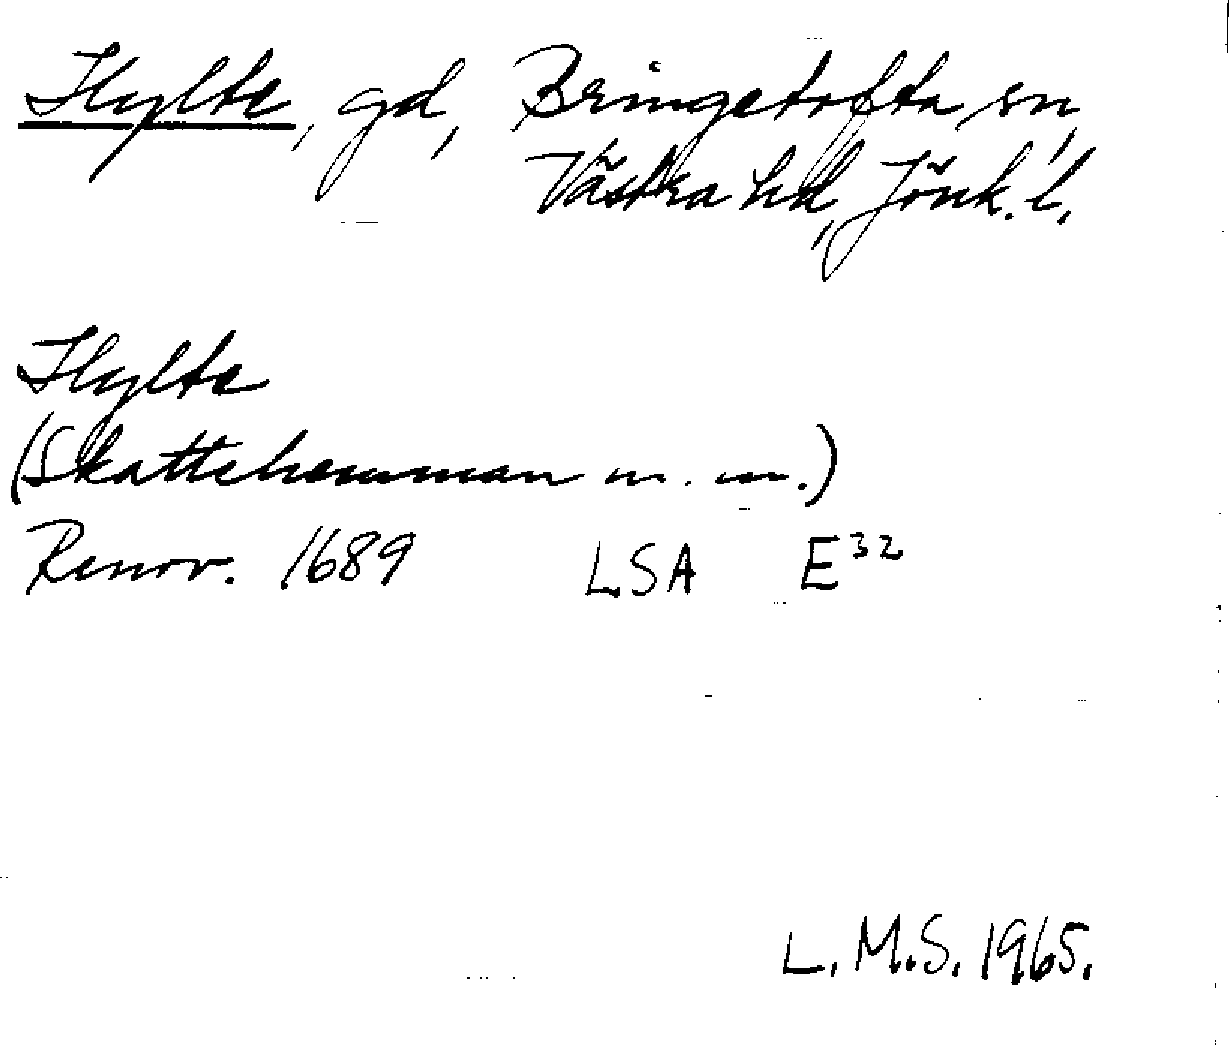 Hylte, gd, Bringetofta sn,
Västra hd, Jönk. l.
Hylte
(Skattehemman m. m.)
Renov. 1689 LSA E32
L.M.S. 1965.